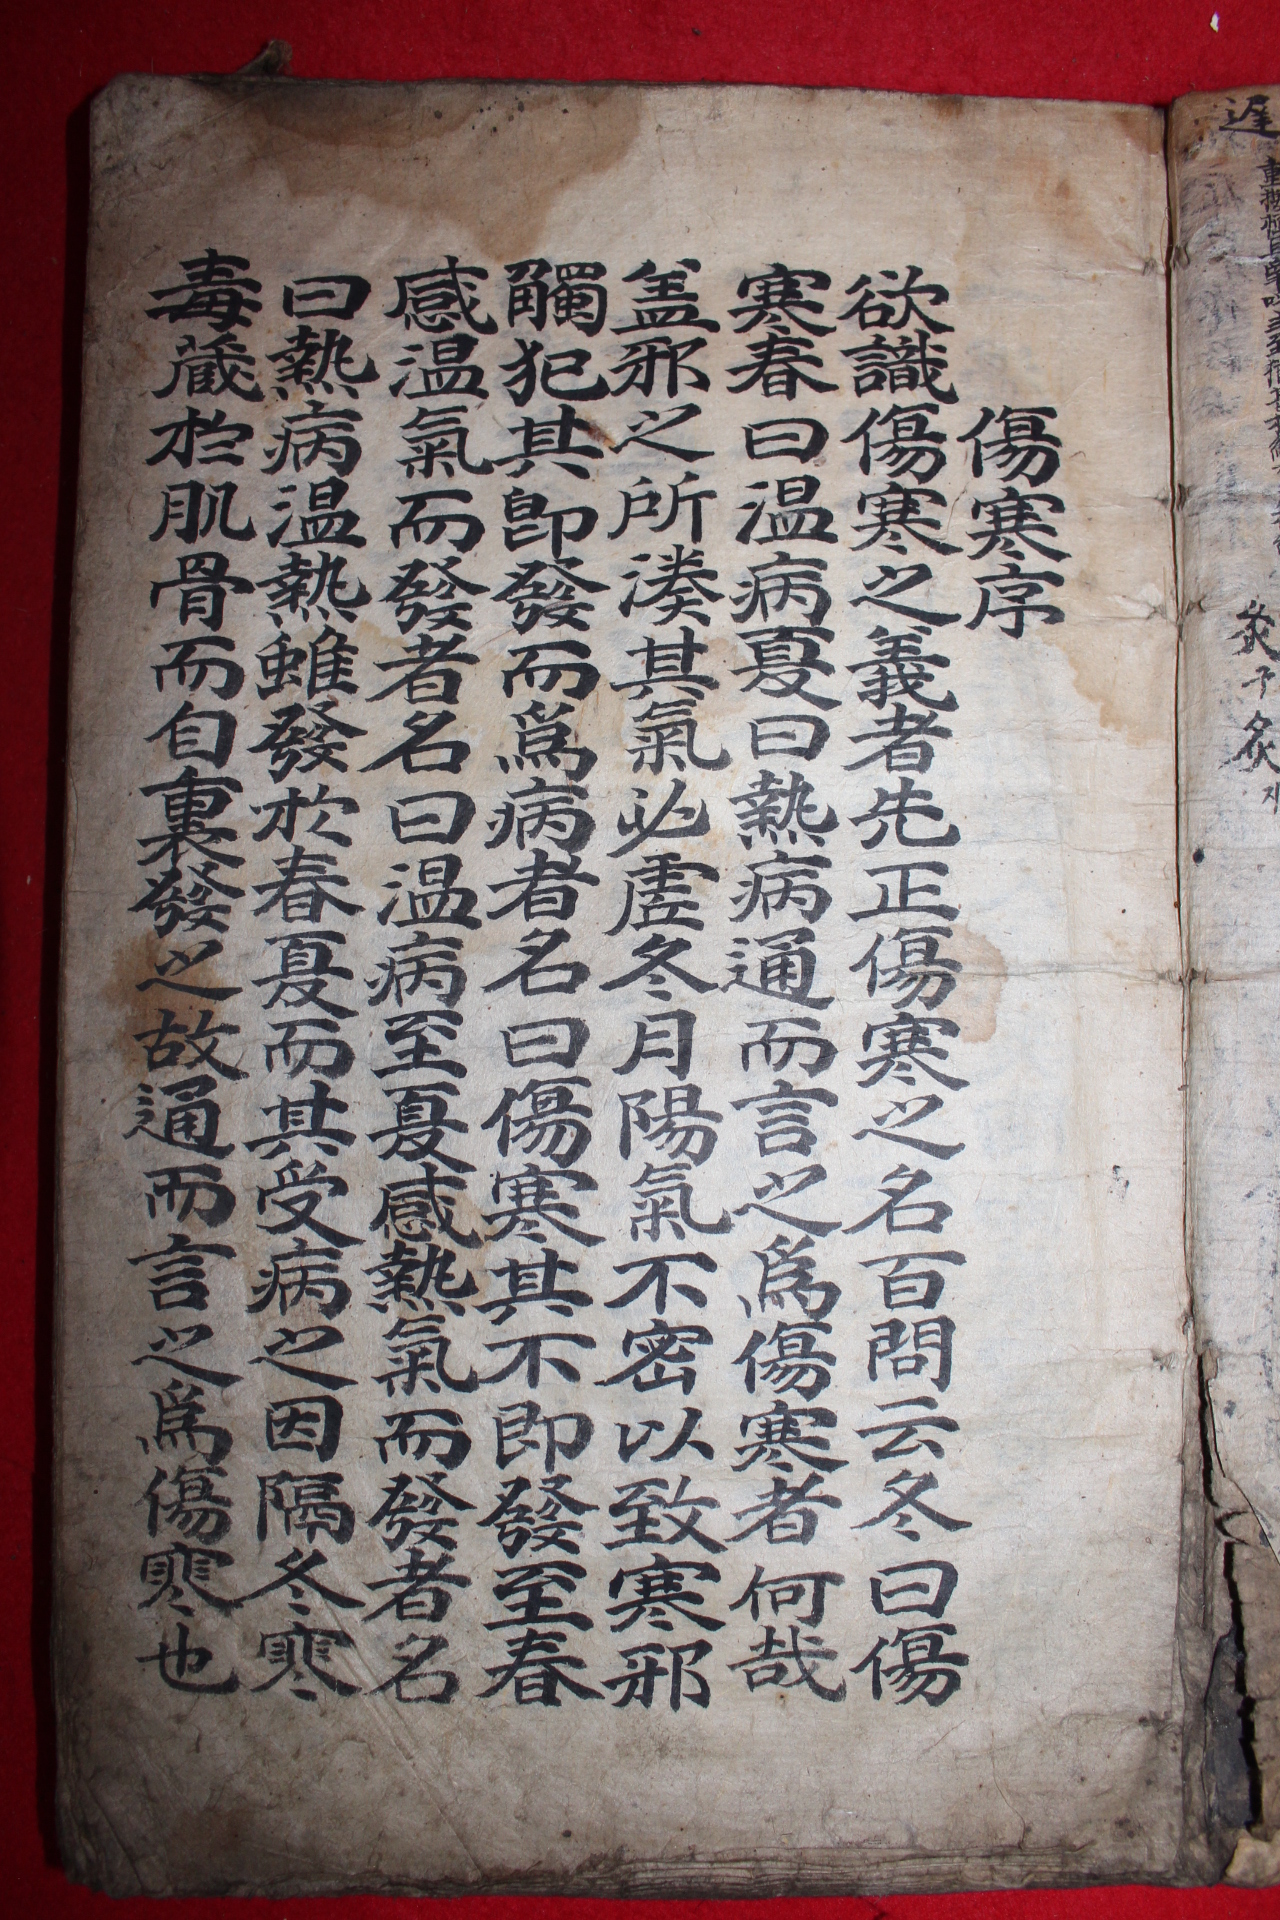 傷寒序
欲識傷寒之義者先正傷寒之名百問云冬曰傷
寒春曰温病夏曰熱病通而言之爲傷寒者何哉
盖邪之所湊其氣必虗冬月陽氣不密以致寒邪
觸犯其卽發而爲病者名曰傷寒其不即發至春
感温氣而發者名曰温病至夏感熱氣而發者名
曰熱病温熱雖發於春夏而其受病之因隔冬寒
毒蔵於肌骨而自裏發之故通而言之爲傷寒也
遅